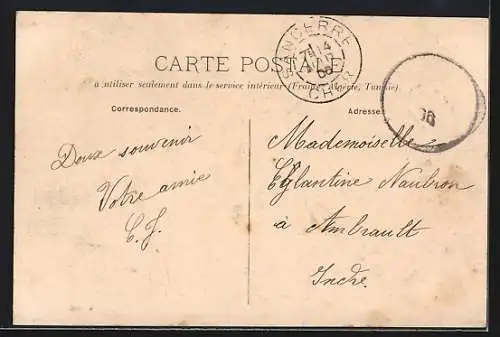 CARTE POSTALE
a utiliser seulement dans le service intérieur (France, Algérie, Tunisie)
SANCERRE
14
08
CHER
08
Correspondance.
Adresse
Doux souvenir
Votre amie
C. J.
Mademoiselle
Eglantine Naubron
à Ambrault
Indre.